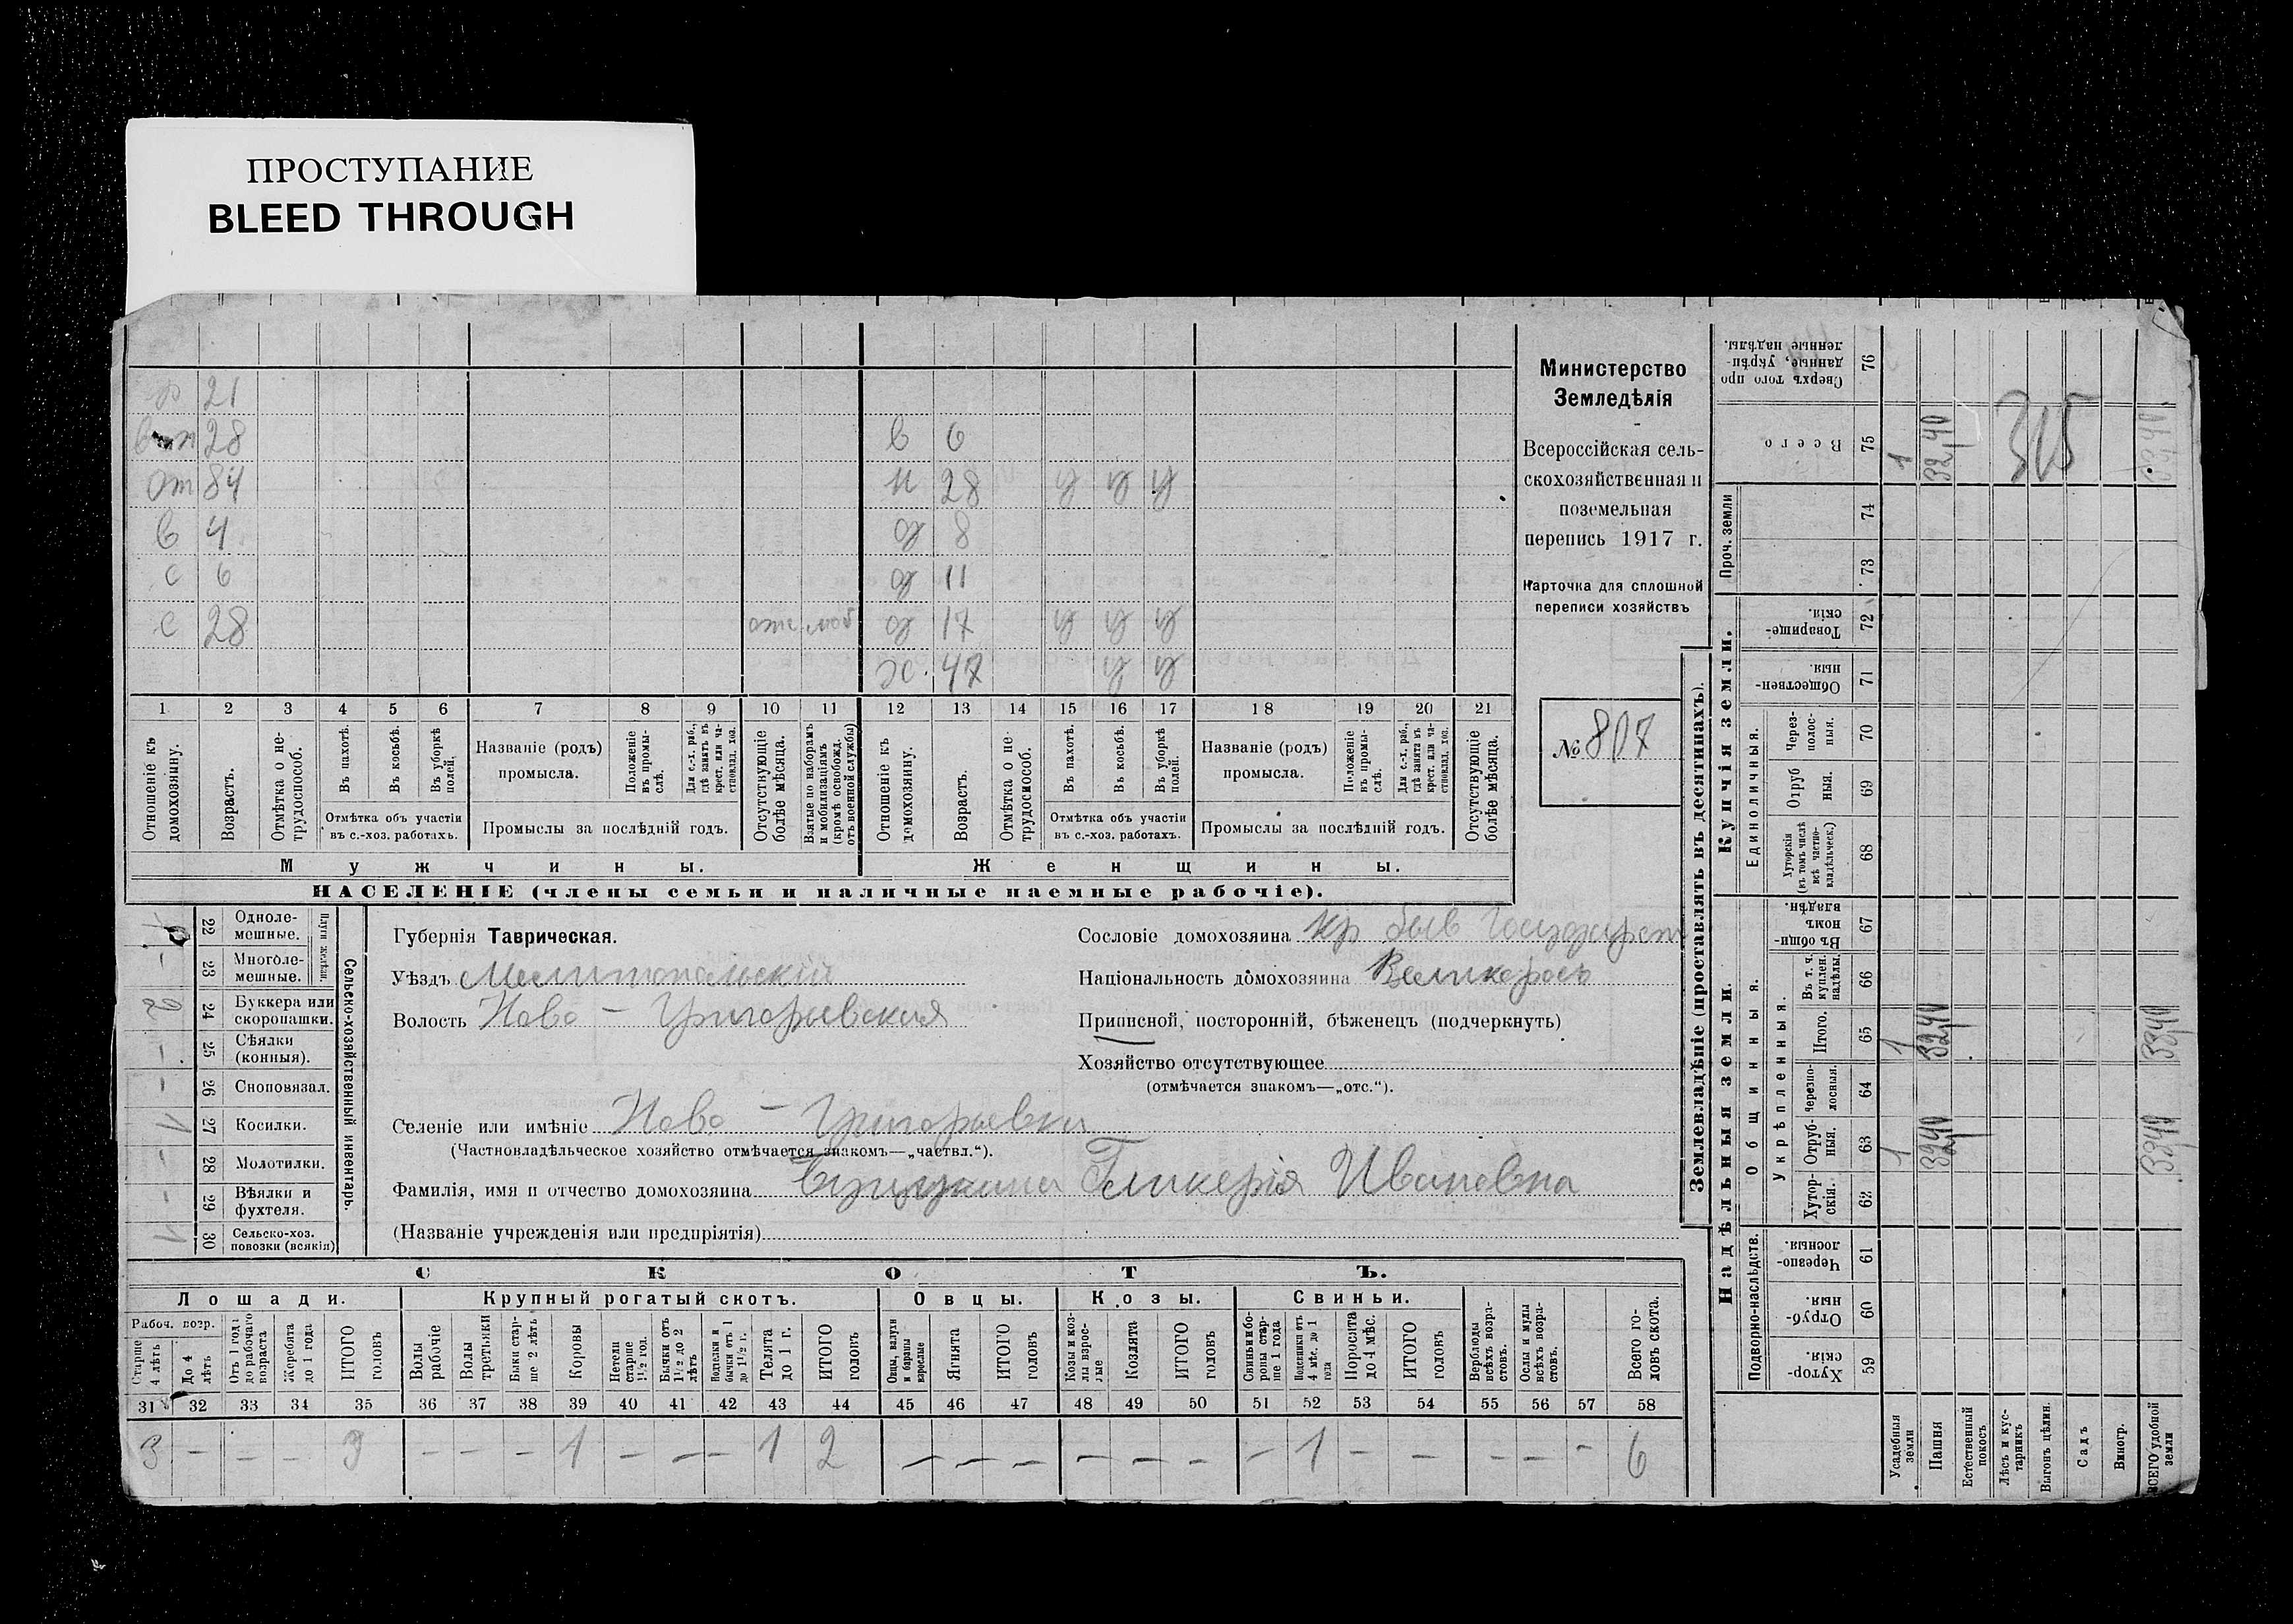 ПРОСТУПАНИЕ
BLEED THROUGH
р 21
28
от 84
в 6
н 28 у у у
в 4
д 8
с 6
д 11
с 28
д 17 у у у
ж. 47 у у
1 2 3 4 5 6 7 8 9 10 11 12 13 14 15 16 17 18 19 20 21
Отношеніе къ домохозяину.
Возрастъ.
Отмѣтка о не-трудоспособ.
Въ пахотѣ.
Въ косьбѣ.
Въ уборкѣ полей.
Отмѣтка объ участіи
въ с.-хоз. работахъ.
Названіе (родъ)
промысла.
Положеніе въ промы-слѣ.
Для с.-х. раб., гдѣ занятъ въ крест. или ча-стновлад. хоз.
Промыслы за послѣдній годъ.
Отсутствующіе болѣе мѣсяца.
Взятые по наборамъ и мобилизаціямъ (кромѣ освобожд. отъ военной службы)
Отношеніе къ домохозяину.
Возрастъ.
Отмѣтка о не-трудоспособ.
Въ пахотѣ.
Въ косьбѣ.
Въ уборкѣ полей.
Отмѣтка объ участіи
въ с.-хоз. работахъ.
Названіе (родъ)
промысла.
Положеніе въ промы-слѣ.
Для с.-х. раб., гдѣ занята въ крест. или ча-стновлад. хоз.
Промыслы за послѣдній годъ.
Отсутствующіе болѣе мѣсяца.
Мужчины.
Женщины.
НАСЕЛЕНІЕ (члены семьи и наличные наемные рабочіе).
Министерство
Земледѣлія
Всероссійская сель-
скохозяйственная и
поземельная
перепись 1917 г.
Карточка для сплошной
переписи хозяйствъ
№ 807
Сельско-хозяйственный инвентарь.
22 Одноле-мешные.
23 Многоле-мешные. -
24 Буккера или скоропашки. 2
25 Сѣялки (конныя). -
26 Сноповязал. -
27 Косилки. 1
28 Молотилки. -
29 Вѣялки и фухтеля. -
30 Сельско-хоз. повозки (всякія) 1
Губернія Таврическая.
Уѣздъ Мелитопольскій
Волость Ново - Григорьевская
Сословіе домохозяина Кр быв Государст
Національность домохозяина Великоросъ
Приписной, посторонній, бѣженецъ (подчеркнуть)
Хозяйство отсутствующее
(отмѣчается знакомъ—„отс.“).
Селеніе или имѣніе Ново - Григорьевка
(Частновладѣльческое хозяйство отмѣчается знакомъ—„частвл.“).
Фамилія, имя и отчество домохозяина Гликерія Ивановна
(Названіе учрежденія или предпріятія)
СКОТЪ.
Лошади.
Крупный рогатый скотъ.
Овцы.
Козы.
Свиньи.
Рабоч. возр.
Старше 4 лѣтъ
До 4 лѣтъ
Отъ 1 года до рабочаго возраста
Жеребята до 1 года
ИТОГО головъ
Волы рабочіе
Волы третьяки
Быки стар-ше 2 лѣтъ
Коровы
Нетели старше 1½ год.
Бычки отъ 1½ до 2 лѣтъ
Подтелки и бычки отъ 1 до 1½ г.
Телята до 1 г.
ИТОГО головъ
Овцы, валухи и бараны взрослые
Ягнята
ИТОГО головъ
Козы и коз-лы взрос-лые
Козлята
ИТОГО головъ
Свиньи и бо-ровы стар-ше 1 года
Подсвинки отъ 4 мѣс. до 1 года
Поросята до 4 мѣс.
ИТОГО головъ
Верблюды всѣхъ возра-стовъ.
Ослы и мулы всѣхъ возра-стовъ.
Всего го-ловъ скота.
31 32 33 34 35 36 37 38 39 40 41 42 43 44 45 46 47 48 49 50 51 52 53 54 55 56 57 58
3 - - - 3 - - - 1 - - - 1 2 - - - - - - - 1 - - - - - 6
Землевладѣніе (проставлять въ десятинахъ).
Надѣльныя земли.
Купчія земли.
Проч. земли
Подворно-наслѣдств.
Общинныя.
Укрѣпленныя.
Единоличныя.
59 Хутор-скія.
60 Отруб-ныя.
61 Черезпо-лосныя.
62 Хутор-скія.
63 Отруб-ныя. 1 3240 3340
64 Черезпо-лосныя.
65 Итого. 1 3240 3340
66 Въ т. ч. куплен. надѣлы.
67 Въ общин-номъ владѣн.
68 Хуторскія (въ томъ числѣ всѣ частно-владѣльческ.)
69 Отруб ныя.
70 Через-полос-ныя.
71 Обществен-ныя.
72 Товарище-скія.
73
74
75 Всего 1 3240 3340
76 Сверхъ того про данные, укрѣп-ленные надѣлы.
315
Усадебныя земли
Пашня
Естественный покосъ
Лѣсъ и кус-тарникъ
Выгонъ цѣлин.
Садъ
Виногр.
ВСЕГО удобной земли